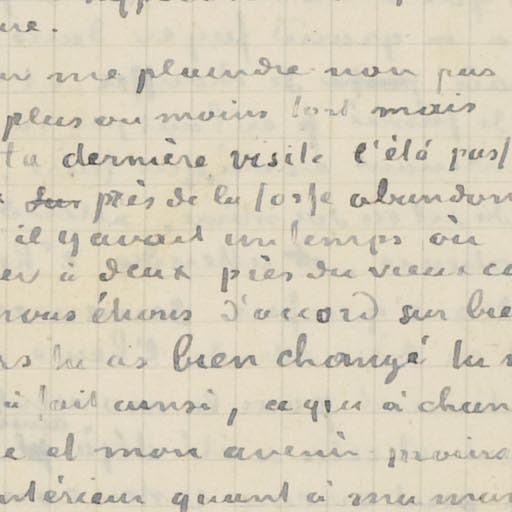 re.
me plaindre non pas
plus ou moins tort mais
ta dernière visite l'été pass
près de la fosse abandon
il y avait un temps où
er à deux près du vieux c
nous étions d'accord sur bie
rs tu as bien changé tu
à fait ainsi, ce qui a chan
e et mon avenir
ntérieur quant à ma